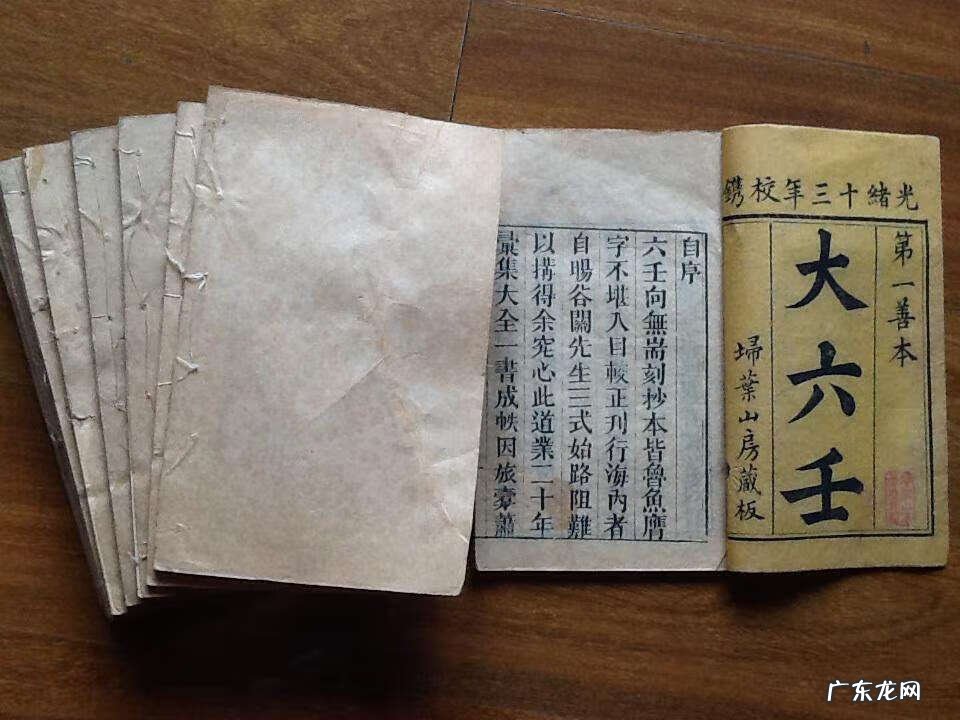 光緒十三年校鐫
第一善本
大六壬
埽葉山房藏板
自序
六壬向無耑刻抄本皆魯魚膺
字不堪入目較正刊行海內者
自暘谷關先生三式始路阻難
以搆得余究心此道業二十年
最集大全一書成帙因旅橐蕭
广东龙网